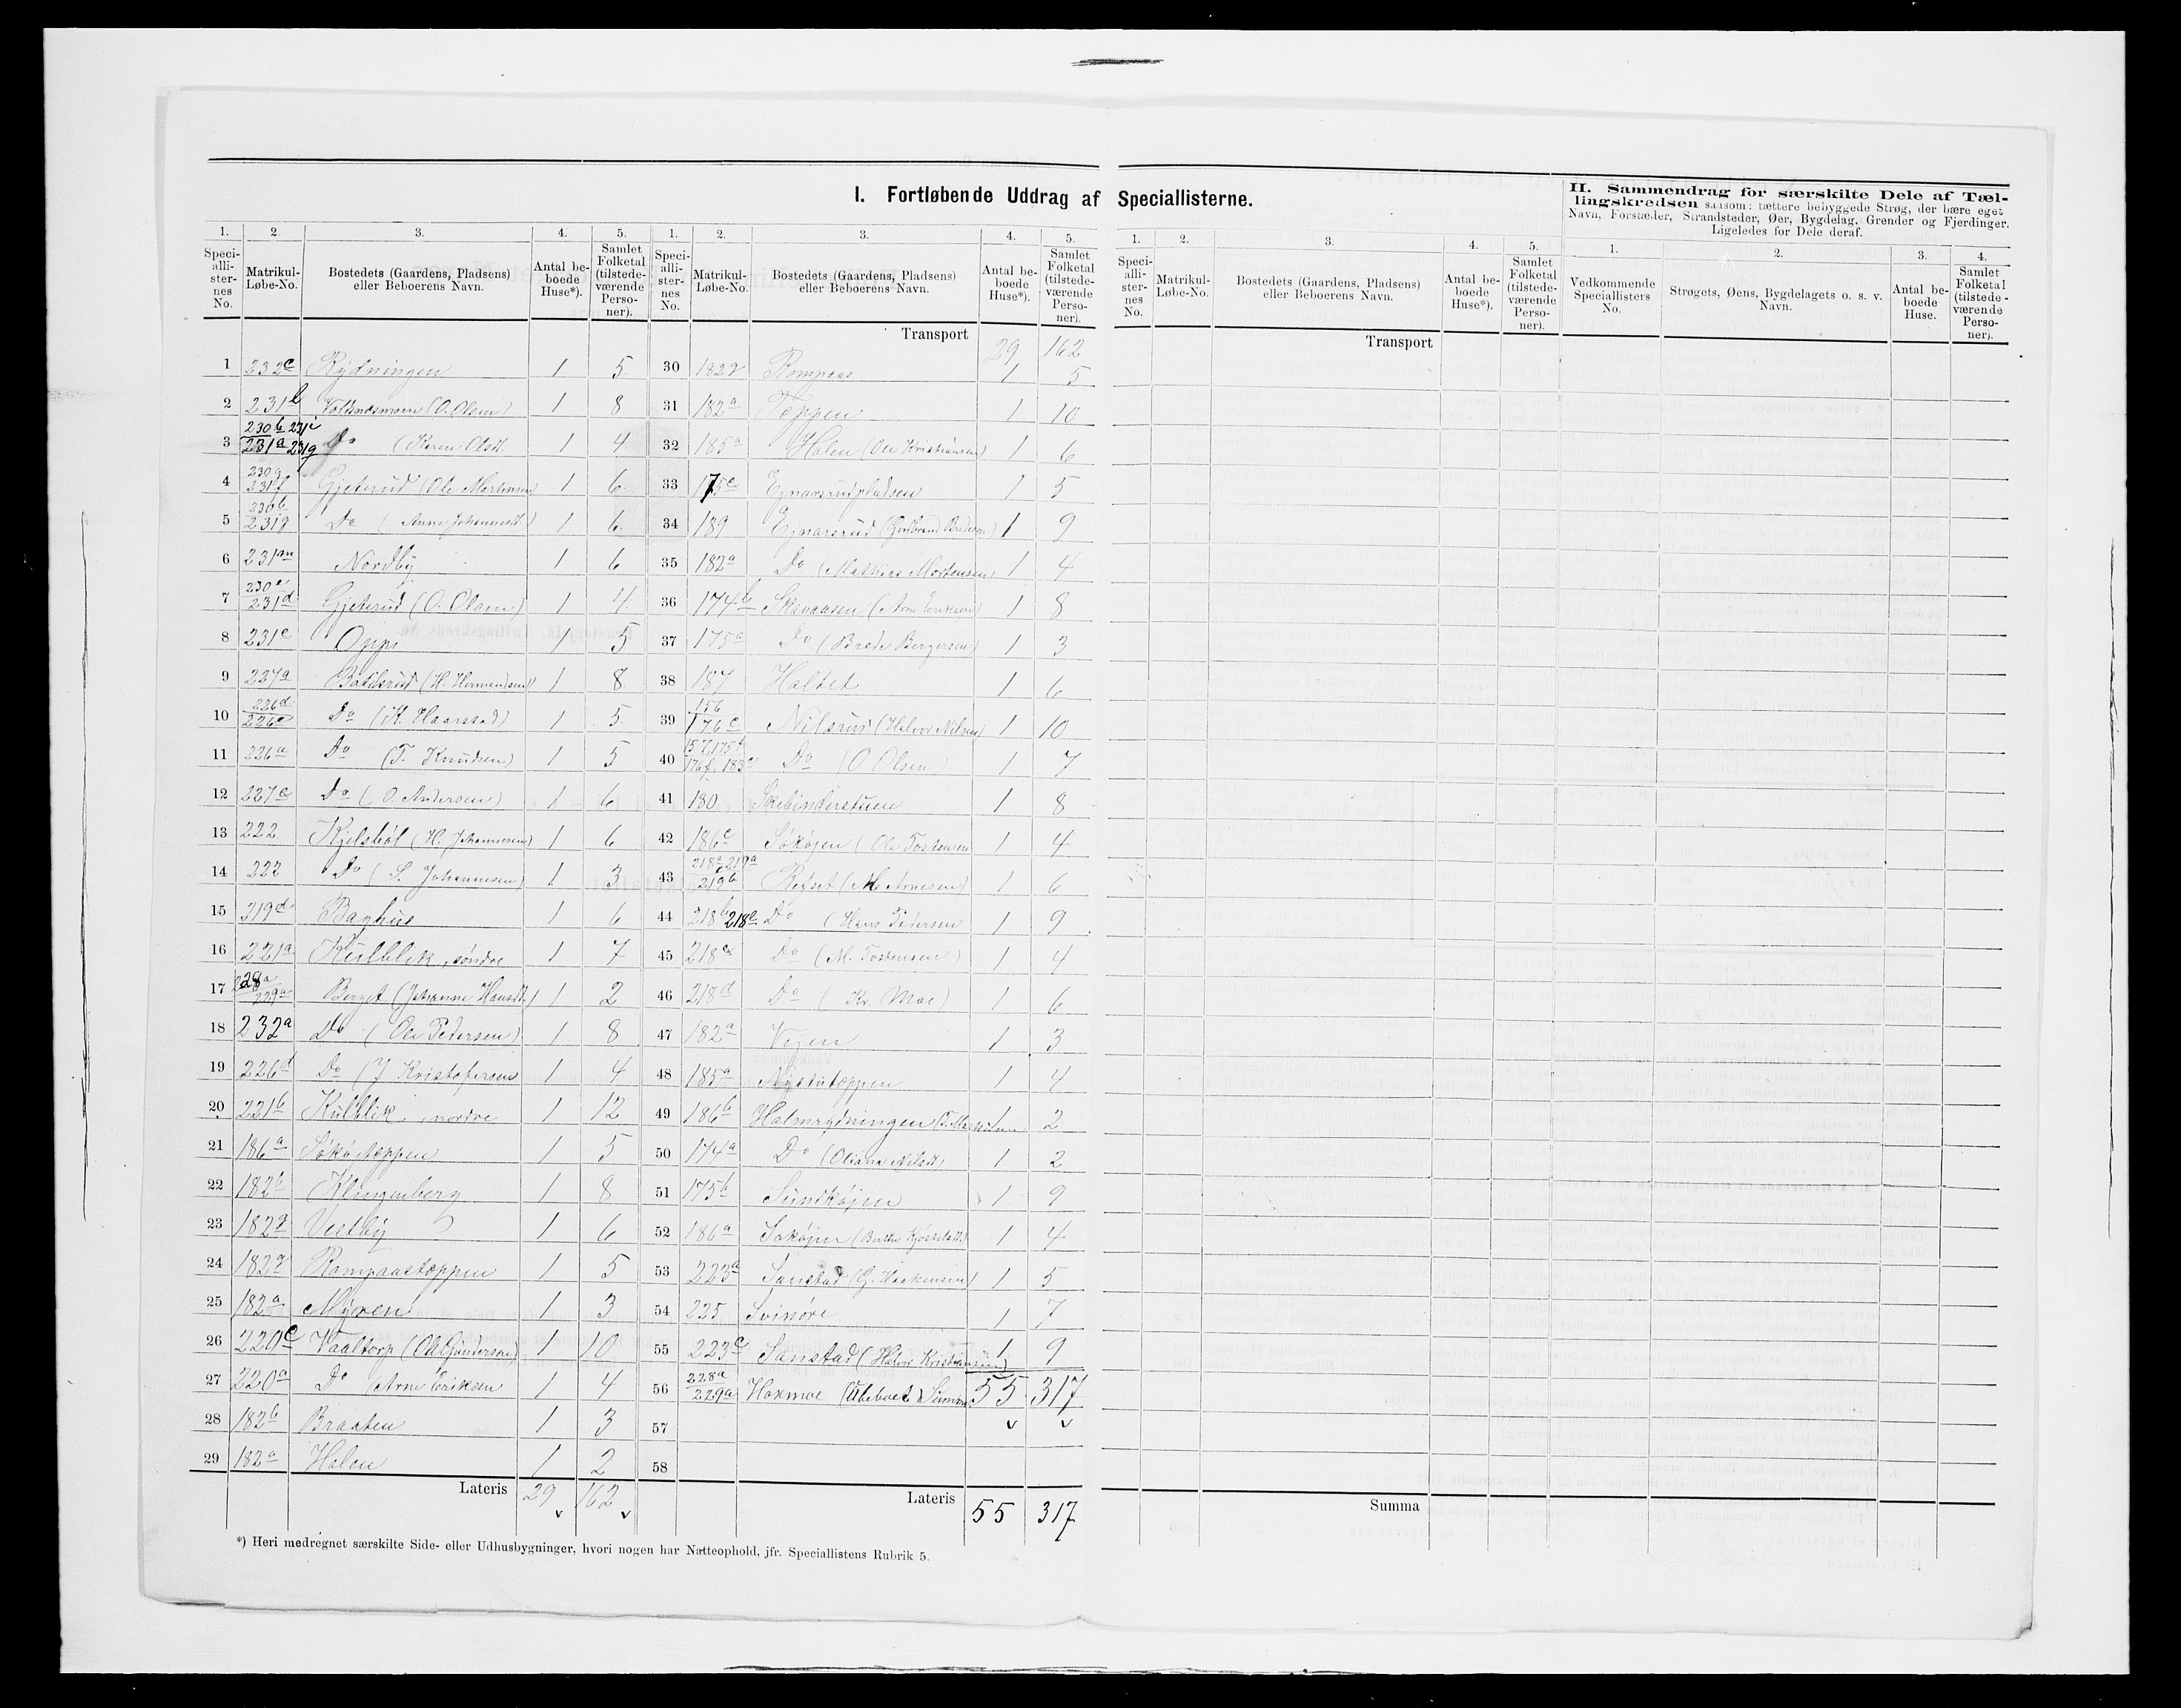 I. Fortløbende Uddrag af Speciallisterne.
II. Sammendrag for særskilte Dele af Tællingskredsen saasom: tættere bebyggede Strøg, der bære eget Navn, Forstæder, Strandsteder, Øer, Bygdelag, Grender og Fjerdinger. Ligeledes for Dele deraf.
1. 2 3. 4. 5. 1. 2. 3. 4. 5. 1. 2. 3. 4. 5. 1. 2. 3. 4.
Speciallisternes No. Matrikul-Løbe-No. Bostedets (Gaardens, Pladsens) eller Beboerens Navn. Antal beboede Huse*). Samlet Folketal (tilstedeværende Personer).
Speciallisternes No. Matrikul-Løbe-No. Bostedets (Gaardens, Pladsens) eller Beboerens Navn. Antal beboede Huse*). Samlet Folketal (tilstedeværende Personer).
Speciallisternes No. Matrikul-Løbe-No. Bostedets (Gaardens, Pladsens) eller Beboerens Navn. Antal beboede Huse*). Samlet Folketal (tilstedeværende Personer).
Vedkommende Speciallisters No. Strøgets, Øens, Bygdelagets o. s. v. Navn. Antal beboede Huse. Samlet Folketal (tilstedeværende Personer).
1 232c Rydningen 1 5
2 231b Voldnæsmoen (O. Olsen) 1 8
3 230b 231i 231a 231g Do (Karen Olsd. 1 4
4 230g 231f Gjeterud (Ole Martinsen) 1 6
5 230b 231g Do (Anne Johannesd.) 1 6
6 231m Nordby 1 6
7 230e 231d Gjeterud (O. Olsen) 1 4
8 231c Opps 1 5
9 227a Botilsrud (H. Hermendsen) 1 8
10 226d 226c Do (K. Haarstad) 1 5
11 226a Do (T. Knudsen) 1 5
12 227c Do (O. Andersen) 1 6
13 222 Kjelsbøl (H. Johannesen) 1 6
14 222 Do (S. Johannesen) 1 3
15 219d Baghus 1 6
16 221a Kulblik, søndre 1 7
17 228a 229a Berget (Johanne Hansd.) 1 2
18 232a Do (Ole Pedersen) 1 8
19 226d Do (J Kristofersen 1 4
20 221b Kulblik, nordre 1 12
21 186a Søkøtæppen 1 5
22 182b Klingenberg 1 8
23 182g Vestby 1 6
24 182g Rompaastæppen 1 5
25 182a Myren 1 3
26 220c Vaaltorp (Ole Gundersen) 1 10
27 220a Do Arne Eriksen 1 4
28 182b Braaten 1 3
29 182a Holen 1 2
Lateris 29 162
Transport 29 162
30 182g Rompaas 1 5
31 182a Teppen 1 10
32 185a Holen (Ole Kristiansen) 1 6
33 175c Ejnarsrudpladsen 1 5
34 189 Ejnarsrud (Gulbrand Bredesen) 1 9
35 182a Do (Mathias Mortensen) 1 4
36 174b Skevausen (Arne Eriksen) 1 8
37 175a Do (Brede Bergersen) 1 3
38 187 Haltet 1 6
39 156 176c Nilsrud (Halvor Nilsen) 1 10
40 157, 175f 176f 183c Do (O Olsen) 1 7
41 180 Skebinderstuen 1 8
42 186c Søkøjen (Ole Tostensen 1 4
43 218a 219a 219b Refset (M. Arnesen) 1 6
44 218b 218c Do (Hans Pedersen 1 9
45 218c Do (M. Tostensen) 1 4
46 218d Do (Kr. Moe) 1 6
47 182a Vejen 1 3
48 185a Nystutæppen 1 4
49 186b Halmrydningen 1 2
50 174a Do (Oliana Nilsd.) 1 2
51 175b Sundkøjen 1 9
52 186a Søkøjen (Berthe Kjøstelsd.) 1 4
53 223a Sanstad (G. Haakensen) 1 5
54 225 Svinøre 1 7
55 223c Sanstad (Halvor Kristiansen) 1 9
56 228a 229a Haxmoe (Ubeboet) Summa 55 317
57
58
Lateris 55 317
Transport
Summa
*) Heri medregnet særskilte Side- eller Udhusbygninger, hvori nogen har Natteophold, jfr. Speciallistens Rubrik 5.